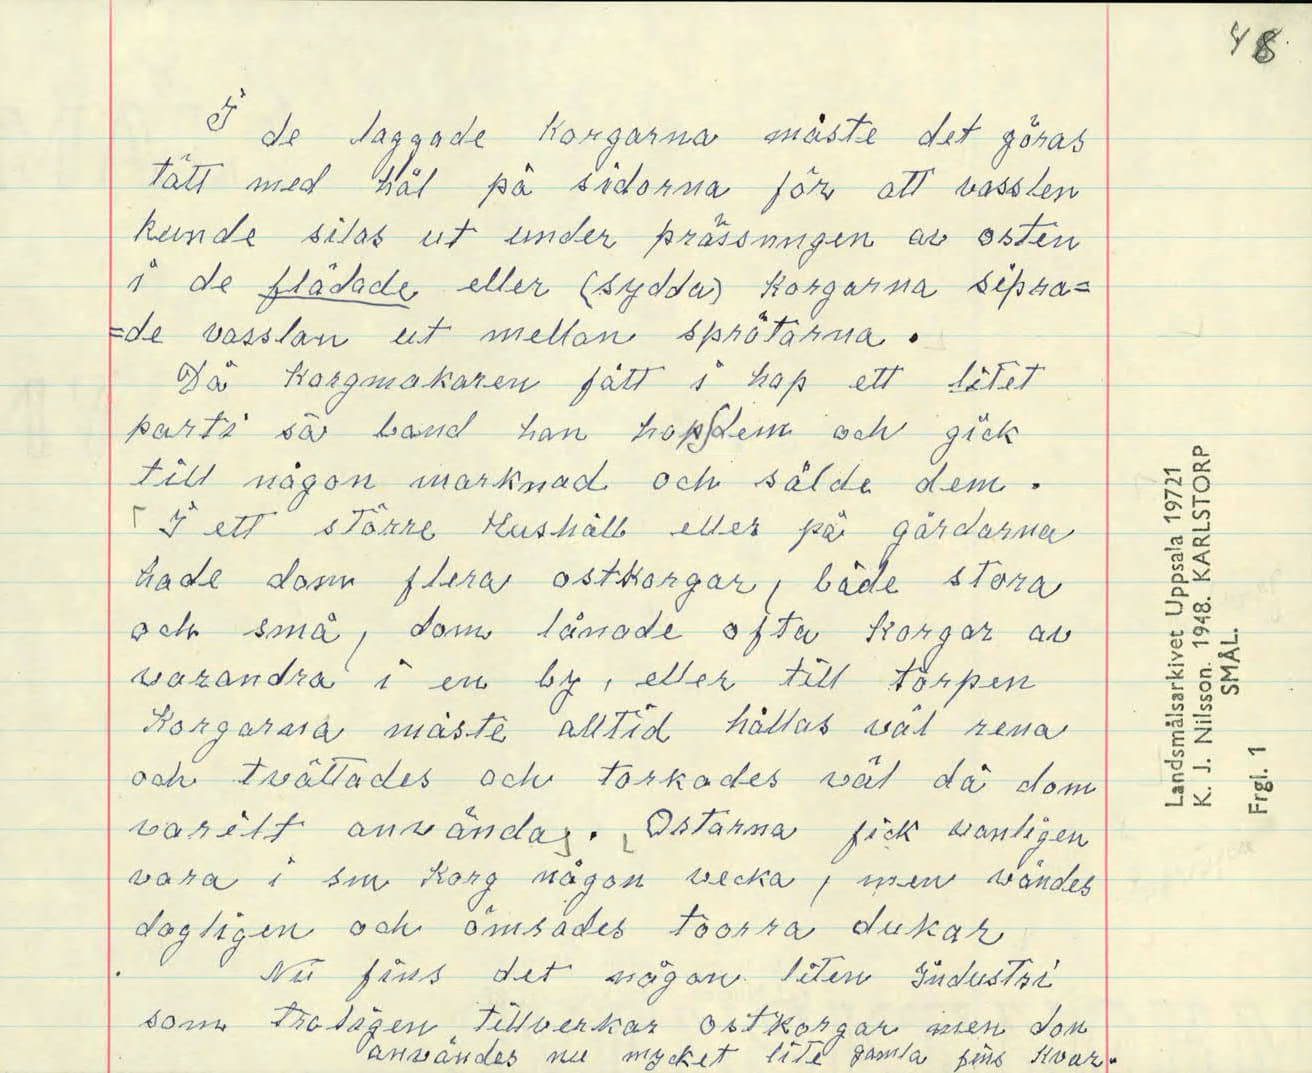 48
I de laggade Korgarna måste det göras
tätt med hål på sidorna för att vasslen
kunde silas ut under prässningen av osten
i de flädade eller (sydda) Korgarna sipra=
=de vasslan ut mellan sprötarna.
Då Korgmakaren fått i hop ett litet
parti så band han hop dem och gick
till någon marknad och sålde dem.
I ett större Hushåll eller på gårdarna
hade dom flera ostkorgar, både stora
och små, dom lånade ofta Korgar av
varandra i en by, eller till torpen
Korgarna måste alltid hållas väl rena
och tvättades och torkades väl då dom
varilt använda. Ostarna fick vanligen
vara i sin Korg någon vecka, men vändes
dagligen och ömsades toorra dukar
Nu fins det någon liten Industri
som troligen tillverkar ostkorgar men don
användes nu mycket lite gamla fins kvar.
Landsmålsarkivet Uppsala 19721
K. J. Nilsson. 1948. KARLSTORP
SMÅL.
Frgl. 1